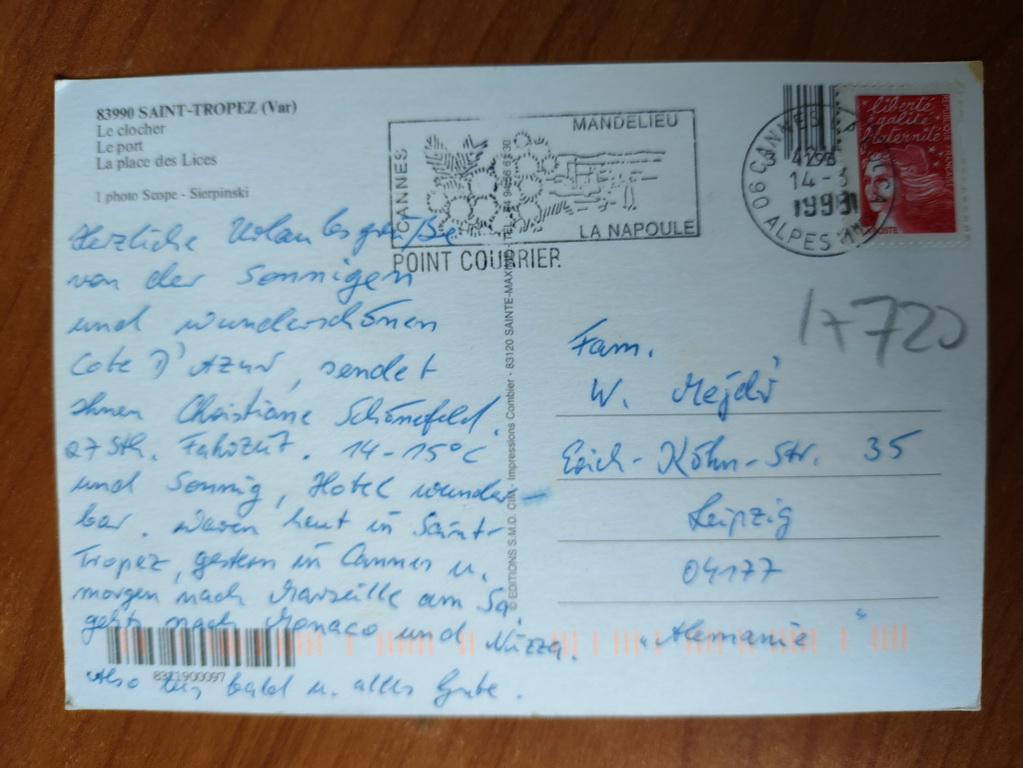 83990 SAINT-TROPEZ (Var)
Le clocher
Le port
La place des Lices
1 photo Scope - Sierpinski
Herzliche Urlaubsgrüße
von der Sonnigen
und wunderschönen
Cote D'Azur, sendet
Ihnen Christiane Schönefeld.
27 Sth. Fahrzeit. 14-15°C
und Sonnig, Hotel wunder-
bar. Waren heut in Saint-
Tropez, gestern in Cannes u.
morgen nach Marseille am Sa.
geht nach Monaco und Nizza.
Also bis bald u. alles Gute.
8311900097
CANNES
MANDELIEU
LA NAPOULE
POINT COURRIER
© EDITIONS S.M.D. CIM - Impressions Combier - 83120 SAINTE-MAXIME
06 CANNES
14-3
ALPES
liberté
égalité
fraternité
17720
Fam.
W.
Erich-Köhn-Str. 35
Leipzig
04177
"Alemanie"